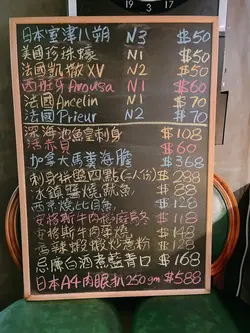 3
日本室津八朔 N3 $50
美國珍珠蠔 N1 $50
法國凱撒XV N2 $50
西班牙Amusa N1 $60
法國Ancelin N1 $70
法國Prieur N2 $70
深海池魚皇刺身 $108
活赤貝 $60
加拿大馬糞海膽 $368
刺身拼盤四點(二人份) $288
水鎮醬燒魷魚 $88
西京燒比目魚 $128
安格斯牛肉稻庭烏冬 $118
安格斯牛肉 $148
蝦炒 $118
忌廉白酒煮藍青口 $168
日本A4肉眼扒250gm $588